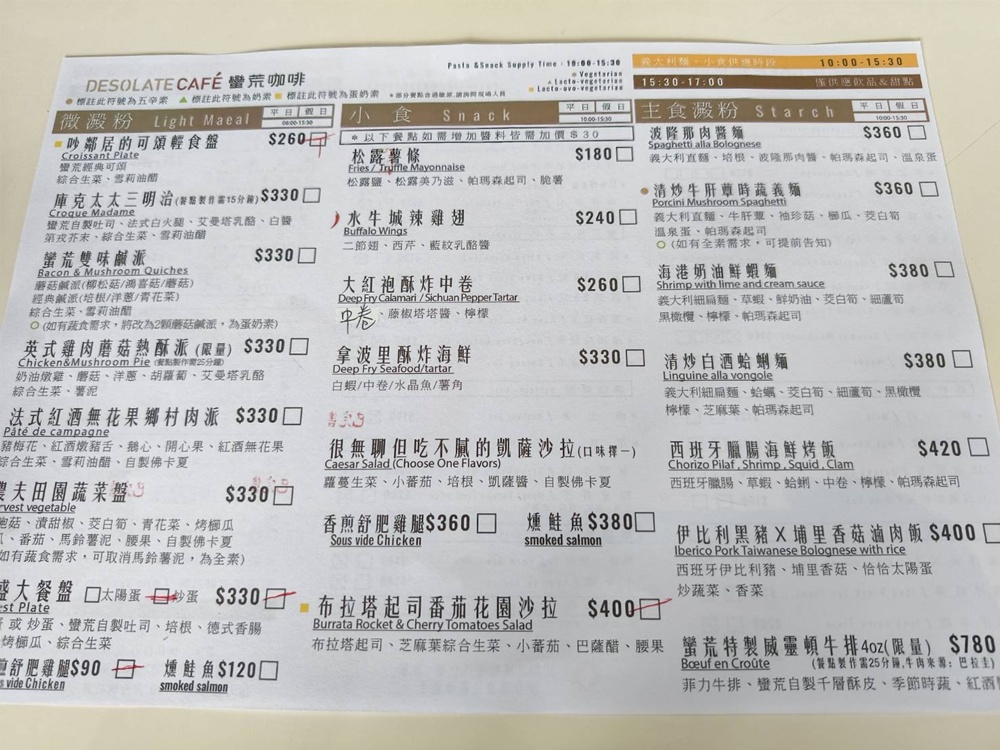 DESOLATE CAFÉ 蠻荒咖啡
Pasta &Snack Supply Time : 10:00-15:30
● Vegetarian
▲ Lacto-vegetarian
■ Lacto-ovo-vegetarian
● 標註此符號為五辛素 ▲ 標註此符號為奶素 ■ 標註此符號為蛋奶素
義大利麵、小食供應時段 10:00-15:30
15:30-17:00 僅供應飲品&甜點
微澱粉 Light Maeal 平日 假日
■ 吵鄰居的可頌輕食盤 $260
Croissant Plate
蠻荒經典可頌
綜合生菜、雪莉油醋
庫克太太三明治(餐點製作需15分鐘) $330
Croque Madame
蠻荒自製吐司、法式白火腿、艾曼塔乳酪、白醬
第戎芥末、綜合生菜、雪莉油醋
蠻荒雙味鹹派 $330
Bacon & Mushroom Quiches
蘑菇鹹派(柳松菇/鴻喜菇/蘑菇)
經典鹹派(培根/洋蔥/青花菜)
綜合生菜、雪莉油醋
(如有蔬食需求，將改為2顆蘑菇鹹派，為蛋奶素)
英式雞肉蘑菇熱酥派 (限量) $330
Chicken&Mushroom Pie (餐點製作需25分鐘)
奶油燉雞、蘑菇、洋蔥、胡蘿蔔、艾曼塔乳酪
綜合生菜、薯泥
法式紅酒無花果鄉村肉派 $330
Pâté de campagne
豬梅花、紅酒燉豬舌、鵝心、開心果、紅酒無花果
綜合生菜、雪莉油醋、自製佛卡夏
農夫田園蔬菜盤 $330
rvest vegetable
菇、漬甜椒、茭白筍、青花菜、烤櫛瓜
、番茄、馬鈴薯泥、腰果、自製佛卡夏
如有蔬食需求，可取消馬鈴薯泥，為全素)
盛大餐盤 太陽蛋 炒蛋 $330
est Plate
或 炒蛋、蠻荒自製吐司、培根、德式香腸
烤櫛瓜、綜合生菜
舒肥雞腿$90 燻鮭魚$120
s vide Chicken smoked salmon
小食 Snack 平日 假日
10:00-15:30
* 以下餐點如需增加醬料皆需加價 $30
松露薯條 $180
Fries / Truffle Mayonnaise
松露鹽、松露美乃滋、帕瑪森起司、脆薯
水牛城辣雞翅 $240
Buffalo Wings
二節翅、西芹、藍紋乳酪醬
大紅袍酥炸中卷 $260
Deep Fry Calamari / Sichuan Pepper Tartar
中卷、藤椒塔塔醬、檸檬
拿波里酥炸海鮮 $330
Deep Fry Seafood/tartar
白蝦/中卷/水晶魚/薯角
很無聊但吃不膩的凱薩沙拉(口味擇一)
Caesar Salad (Choose One Flavors)
蘿蔓生菜、小蕃茄、培根、凱薩醬、自製佛卡夏
香煎舒肥雞腿$360 燻鮭魚$380
Sous vide Chicken smoked salmon
■ 布拉塔起司番茄花園沙拉 $400
Burrata Rocket & Cherry Tomatoes Salad
布拉塔起司、芝麻葉綜合生菜、小蕃茄、巴薩醋、腰果
主食澱粉 Starch 平日 假日
10:00-15:30
波隆那肉醬麵 $360
Spaghetti alla Bolognese
義大利直麵、培根、波隆那肉醬、帕瑪森起司、溫泉蛋
● 清炒牛肝蕈時蔬義麵 $360
Porcini Mushroom Spaghetti
義大利直麵、牛肝蕈、袖珍菇、櫛瓜、茭白筍
溫泉蛋、帕瑪森起司
(如有全素需求，可提前告知)
海港奶油鮮蝦麵 $380
Shrimp with lime and cream sauce
義大利細扁麵、草蝦、鮮奶油、茭白筍、細蘆筍
黑橄欖、檸檬、帕瑪森起司
清炒白酒蛤蜊麵 $380
Linguine alla vongole
義大利細扁麵、蛤蠣、茭白筍、細蘆筍、黑橄欖
檸檬、芝麻葉、帕瑪森起司
西班牙臘腸海鮮烤飯 $420
Chorizo Pilaf , Shrimp , Squid , Clam
西班牙臘腸、草蝦、蛤蜊、中卷、檸檬、帕瑪森起司
伊比利黑豬X埔里香菇滷肉飯 $400
Iberico Pork Taiwanese Bolognese with rice
西班牙伊比利豬、埔里香菇、恰恰太陽蛋
炒蔬菜、香菜
蠻荒特製威靈頓牛排4oz(限量) $780
Bœuf en Croûte (餐點製作需25分鐘,牛肉來源: 巴拉圭)
菲力牛排、蠻荒自製千層酥皮、季節時蔬、紅酒